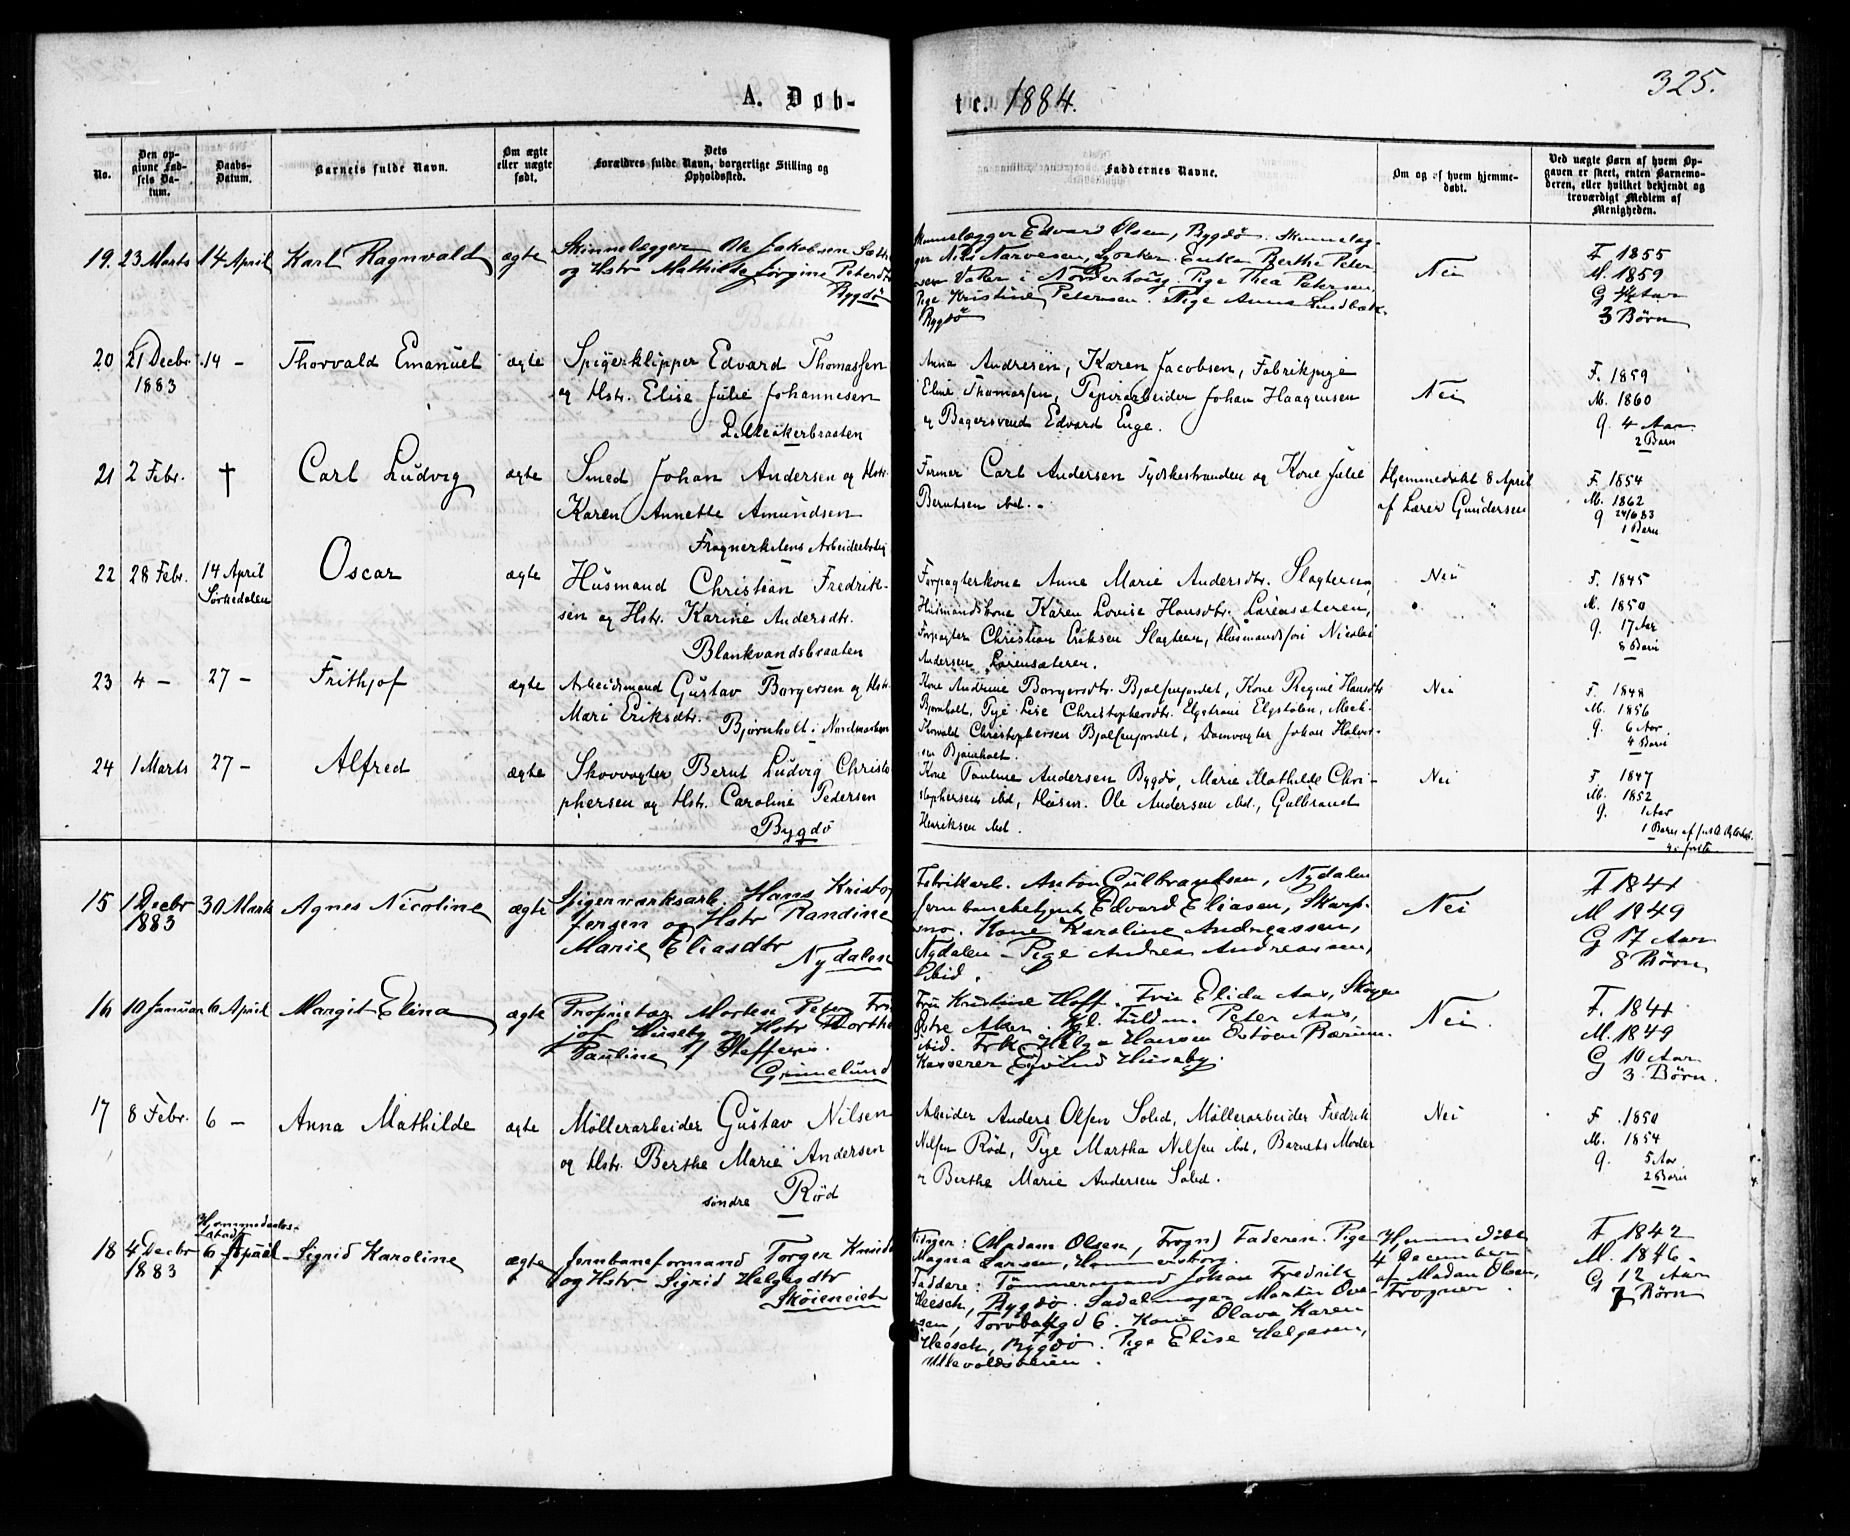 325.
A. Døb-
te. 1884.
No.
Den op-
givne Fød-
sels Da-
tum.
Daabs-
Datum.
Barnets fulde Navn.
Om ægte
eller uægte
født.
Dets
Forældres fulde Navn, borgerlige Stilling og
Opholdssted.
Faddernes Navne.
Om og af hvem hjemme-
døbt.
Ved uægte Børn af hvem Op-
gaven er skeet, enten Barnemo-
deren, eller hvilket bekjendt og
troværdigt Medlem af
Menigheden.
19. 23 Marts 14 April Karl Ragnvald ægte Skinnelægger Ole Jakobsen
og Hstr Mathilde Jørgine
Bygdø
Skinnelægger Edvard Olsen, Bygdø. Skinnelæg-
ger Nils Narvesen, Enke Berthe Peter-
sen Vaker i Norderhoug. Pige Thea Petersen.
Pige Kristine Petersen. Pige Anna
Bygdø
Nei
F 1855
M. 1859
G Aar
3 Børn
20 21 Decbr 14 - Thorvald Emanuel ægte Spigerklipper Edvard Thomassen
1883
og Hstr. Elise Julie Johannesen
Lilleakerbraaten
Anna Andresen, Karen Jacobsen, Fabrikpige
Eline Thomassen, Papirarbeider Johan Haagensen
og Bagersvend Edvard Enge.
Nei
F. 1859
M. 1860
G. 4 Aar.
2 Børn
21 2 Febr. † Carl Ludvig ægte Smed Johan Andersen og Hstr.
Karen Annette Amundsen
Frognerkilens Arbeiderbolig
Former Carl Andersen Tydskestranden og Kone Julie
Berntsen ibd.
Hjemmedøbt 8 April
af Lærer Gundersen
F. 1854
M. 1862
G 24/6 83
1 Barn
22 28 Febr. 14 April Oscar ægte Husmand Christian Fredrik-
Sørkedalen
sen og Hstr. Karine Andersdtr.
Blankvandsbraaten
Forpagterkone Anne Marie Andersdtr. Slagteren,
Husmandskone Karen Lovise Hansdtr. Lørensæteren,
Forpagter Christian Eriksen Slagteren, Nicolai
Andersen Lørensæteren.
Nei
F. 1845
M. 1850
G. 17 Aar
8 Børn
23 4 - 27 - Frithjof ægte Arbeidsmand Gustav Borgersen og Hstr.
Mari Eriksdtr. Bjørnholt i Nordmarken
Kone Andrine Borgersdtr. Kone Regine Hansdtr
Bjørnholt, Pige Lise Christophersdtr.
Thorvald Christophersen Damvogter Johan Halvor-
sen Bjørnholt.
Nei
F. 1848
M. 1856
G. 6 Aar.
4 Børn
24 1 Marts 27 - Alfred ægte Skovvogter Bernt Ludvig Christo-
phersen og Hstr. Caroline Pedersen
Bygdø
Kone Pauline Andersen Bygdø, Marie Mathilde Chri-
stophersen ibd, Ole Andersen ibd., Gulbrand
Henriksen ibd.
Nei
F. 1847
M. 1852
G. 1 Aar
1 Barn
15 1 Decbr 30 Marts Agnes Nicoline ægte Spigerværksarb. Hans Kristof
1883
fersen og Hstr Randine
Marie Eliasdtr
Nydalen
Fabrikarb. Anton Gulbrandsen, Nydalen
Jernbanebetjent Edvard Eliasen, Skarps-
no. Kone Karoline Andreassen,
Nydalen - Pige Andrea Andreassen,
ibid.
Nei
F 1841
M 1849
G 17 Aar
8 Børn
16 10 Januar 6 April Margit Elina ægte Proprietær Morten Peter Frit
jof Huseby og Hstr Dorthe
Pauline f Steffens.
Grimelund
Fru Kristine Hoff. Fru Elida Aas, Skøyen
Østre Aker. Kgl. Fuldm. Peter Aas,
ibid. Frk Helga Hansen Østern Bærum.
Kasserer Eyvind Huseby.
Nei.
F. 1841
M. 1849
G 10 Aar
3. Børn.
17 8 Febr. 6 - Anna Mathilde ægte Møllerarbeider Gustav Nilsen
og Hstr. Berthe Marie Andersen
søndre Rød
Arbeider Anders Olsen Solid, Møllerarbeider Fredrik
Nilsen Rød, Pige Martha Nilsen ibd, Barnets Moder
og Berthe Marie Andersen Solid.
Nei
F. 1850
M. 1854
G. 5 Aar
2 Børn
18 4 Decbr 6 April Sigrid Karoline ægte Jernbaneformand Torger Knuds
1883
og Hstr Sigrid Helgesdtr
Skøieneiet
Vidner: (Madam Olsen, Frogn) Faderen. Pige
Magna Larsen, Hammersborg.
Faddere: Tømmermand Johan Fredrik
Heesch, Bygdø. Sadelmager Martin Ove-
sen, Torvbakgd 6. Kone Olava Karen
Heesch, Bygdø. Pige Elise Helgesen,
Ullevoldsveien.
Hjemmedøbt
4 December
af Madam Olsen,
Frogner.
F 1842
M. 1846
G 12 Aar
7 Børn